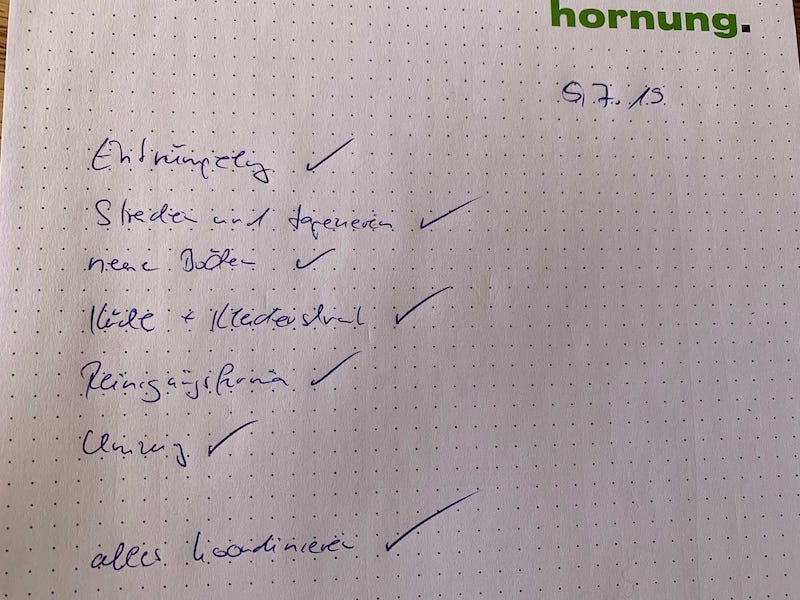 hornung.
9.7.19
Entrümpelung ✓
Streichen und tapezieren ✓
neue Böden ✓
Küche + Kleiderschrank ✓
Reinigungsfirma ✓
Umzug ✓
alles koordinieren ✓